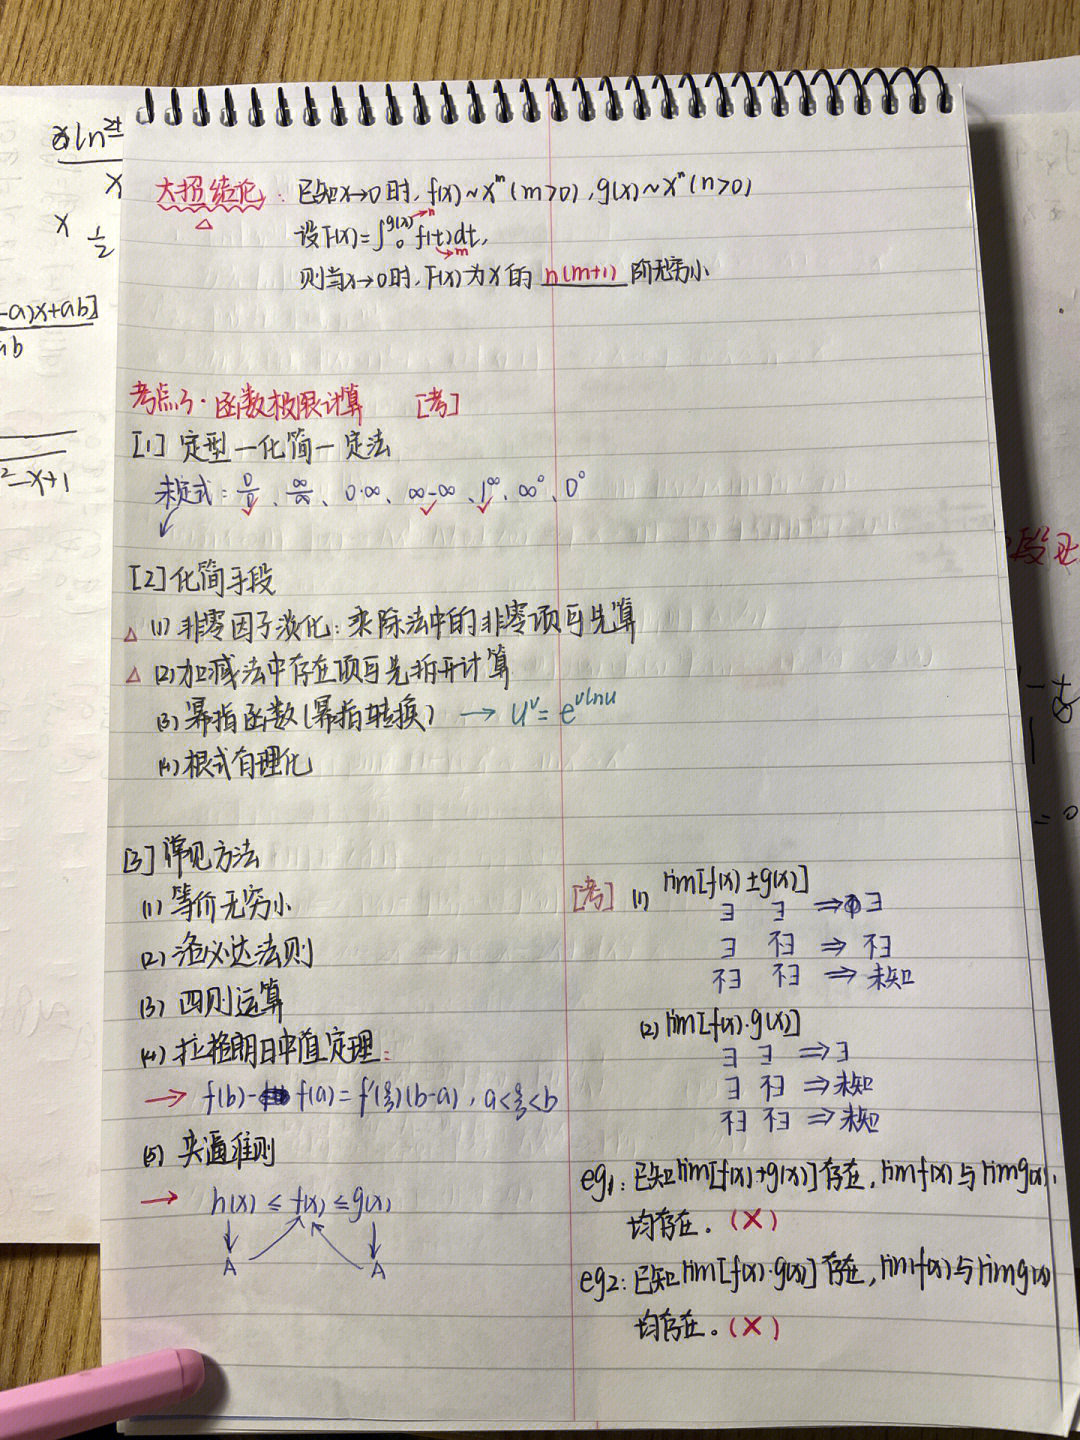 大招结论：已知x→0时，f(x)~x^m(m>0)，g(x)~x^n(n>0)
设F(x)=∫₀^{g(x)→n} f(t)dt，
→m
则当x→0时，F(x)为x的 n(m+1) 阶无穷小
考点3·函数极限计算 [考]
[1] 定型—化简—定法
未定式：0/0、∞/∞、0·∞、∞-∞、1^∞、∞^0、0^0
[2]化简手段
△ (1) 非零因子淡化：乘除法中的非零项可先算
△ (2)加减法中存在项可先拆开计算
(3) 幂指函数(幂指转换) → u^v = e^{vlnu}
(4) 根式有理化
[3] 常见方法
(1) 等价无穷小
(2) 洛必达法则
(3) 四则运算
(4) 拉格朗日中值定理：
→ f(b)- f(a)=f'(ξ)(b-a)，a<ξ<b
(5) 夹逼准则
→ h(x) ≤ f(x) ≤ g(x)
A A
[考] (1) lim[f(x)±g(x)]
∃ ∃ ⇒ ∃
∃ 不∃ ⇒ 不∃
不∃ 不∃ ⇒ 未知
(2) lim[f(x)·g(x)]
∃ ∃ ⇒ ∃
∃ 不∃ ⇒ 未知
不∃ 不∃ ⇒ 未知
eg1：已知lim[f(x)+g(x)]存在，limf(x)与limg(x)
均存在。(×)
eg2：已知lim[f(x)·g(x)]存在，limf(x)与limg(x)
均存在。(×)
x
x 1/2
-a)x+ab]
ab
²-x+1
段
= 0